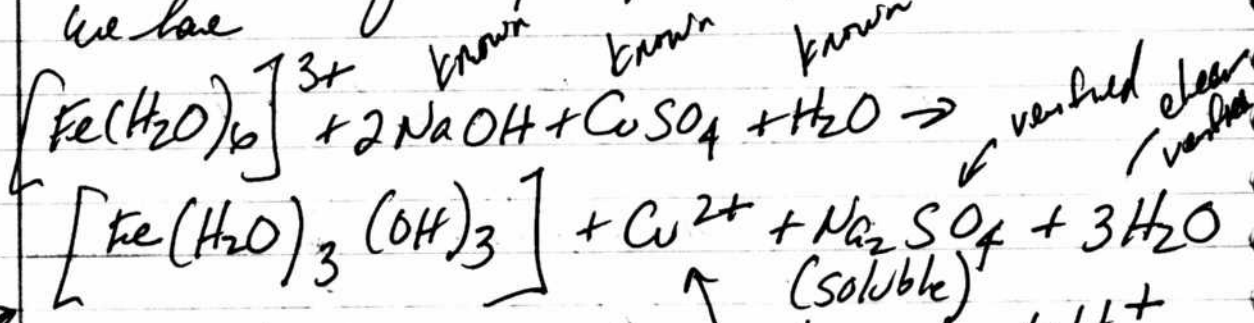 we have
known known known
[Fe(H₂O)₆]³⁺ + 2NaOH + CuSO₄ + H₂O → verified
[Fe(H₂O)₃(OH)₃] + Cu²⁺ + Na₂SO₄ + 3H₂O
(soluble)